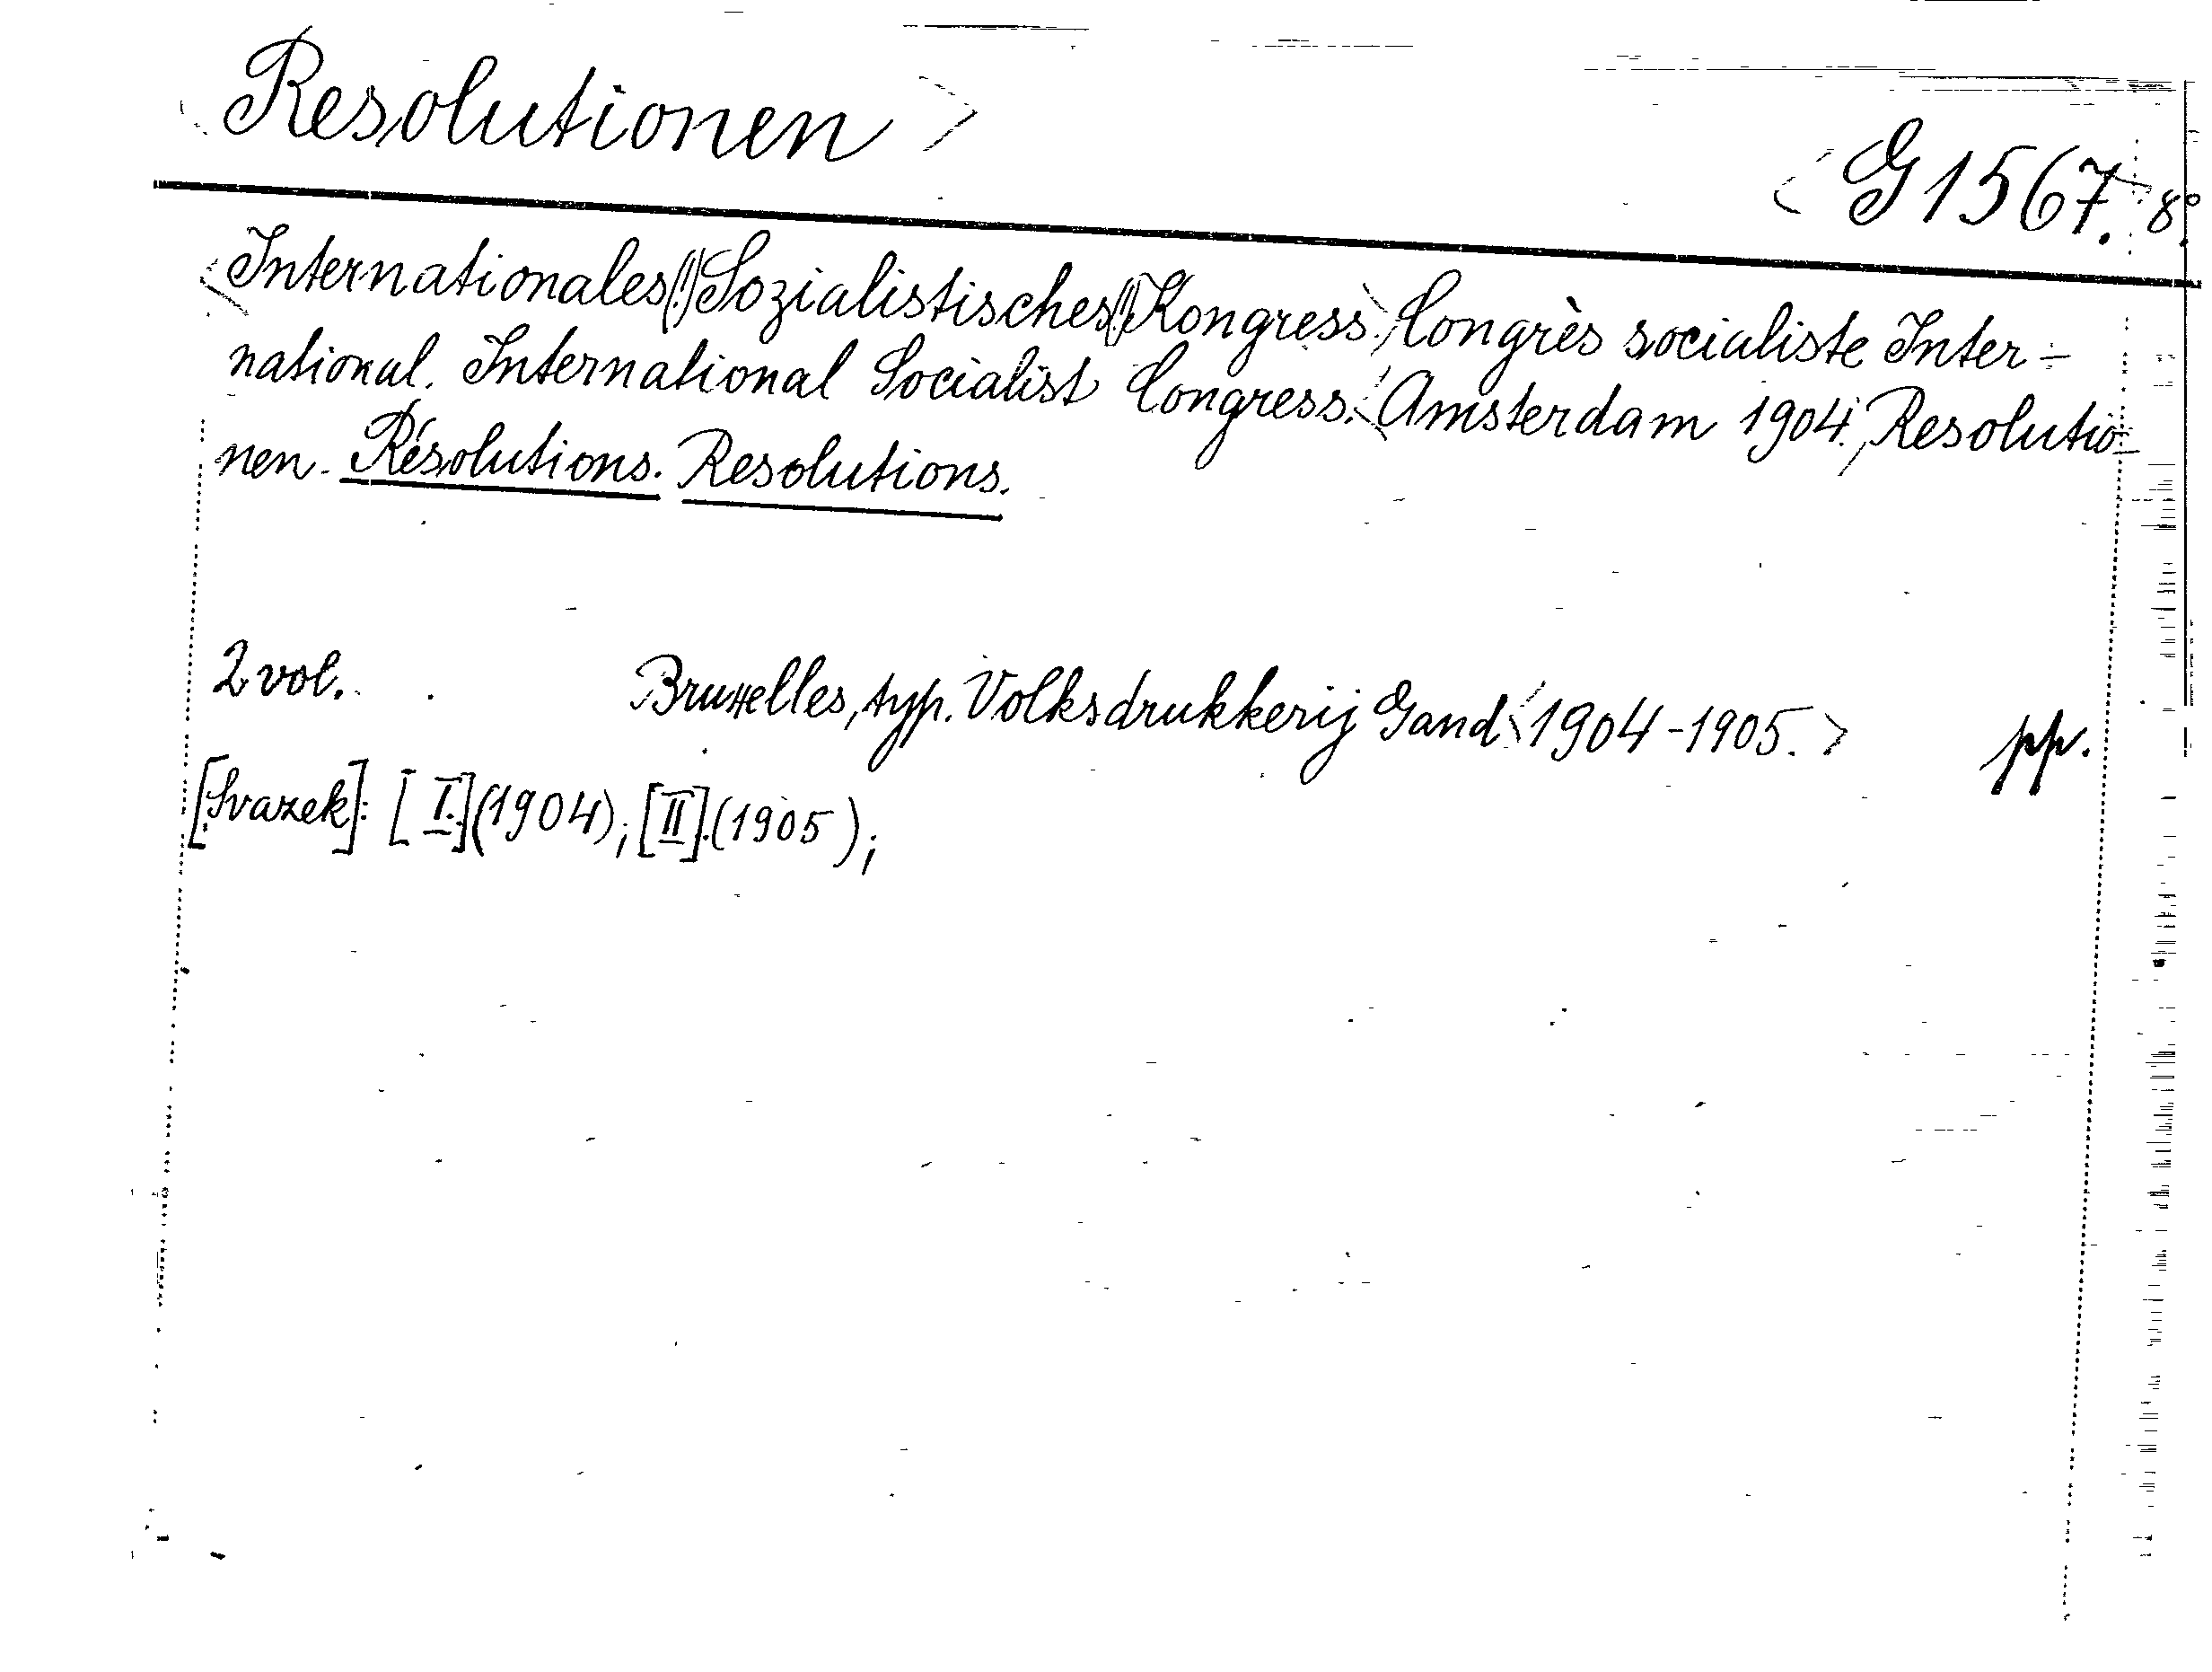 Resolutionen
G 1567. 8°.
Internationales(!) Sozialistisches(!) Kongress. Congrès socialiste Inter-
national. International Socialist Congress. Amsterdam 1904. Resolutio-
nen. Résolutions. Resolutions.
2 vol. Bruxelles, typ. Volksdrukkerij Gand 1904-1905. pp.
[Svazek]: [I.](1904); [II].(1905);